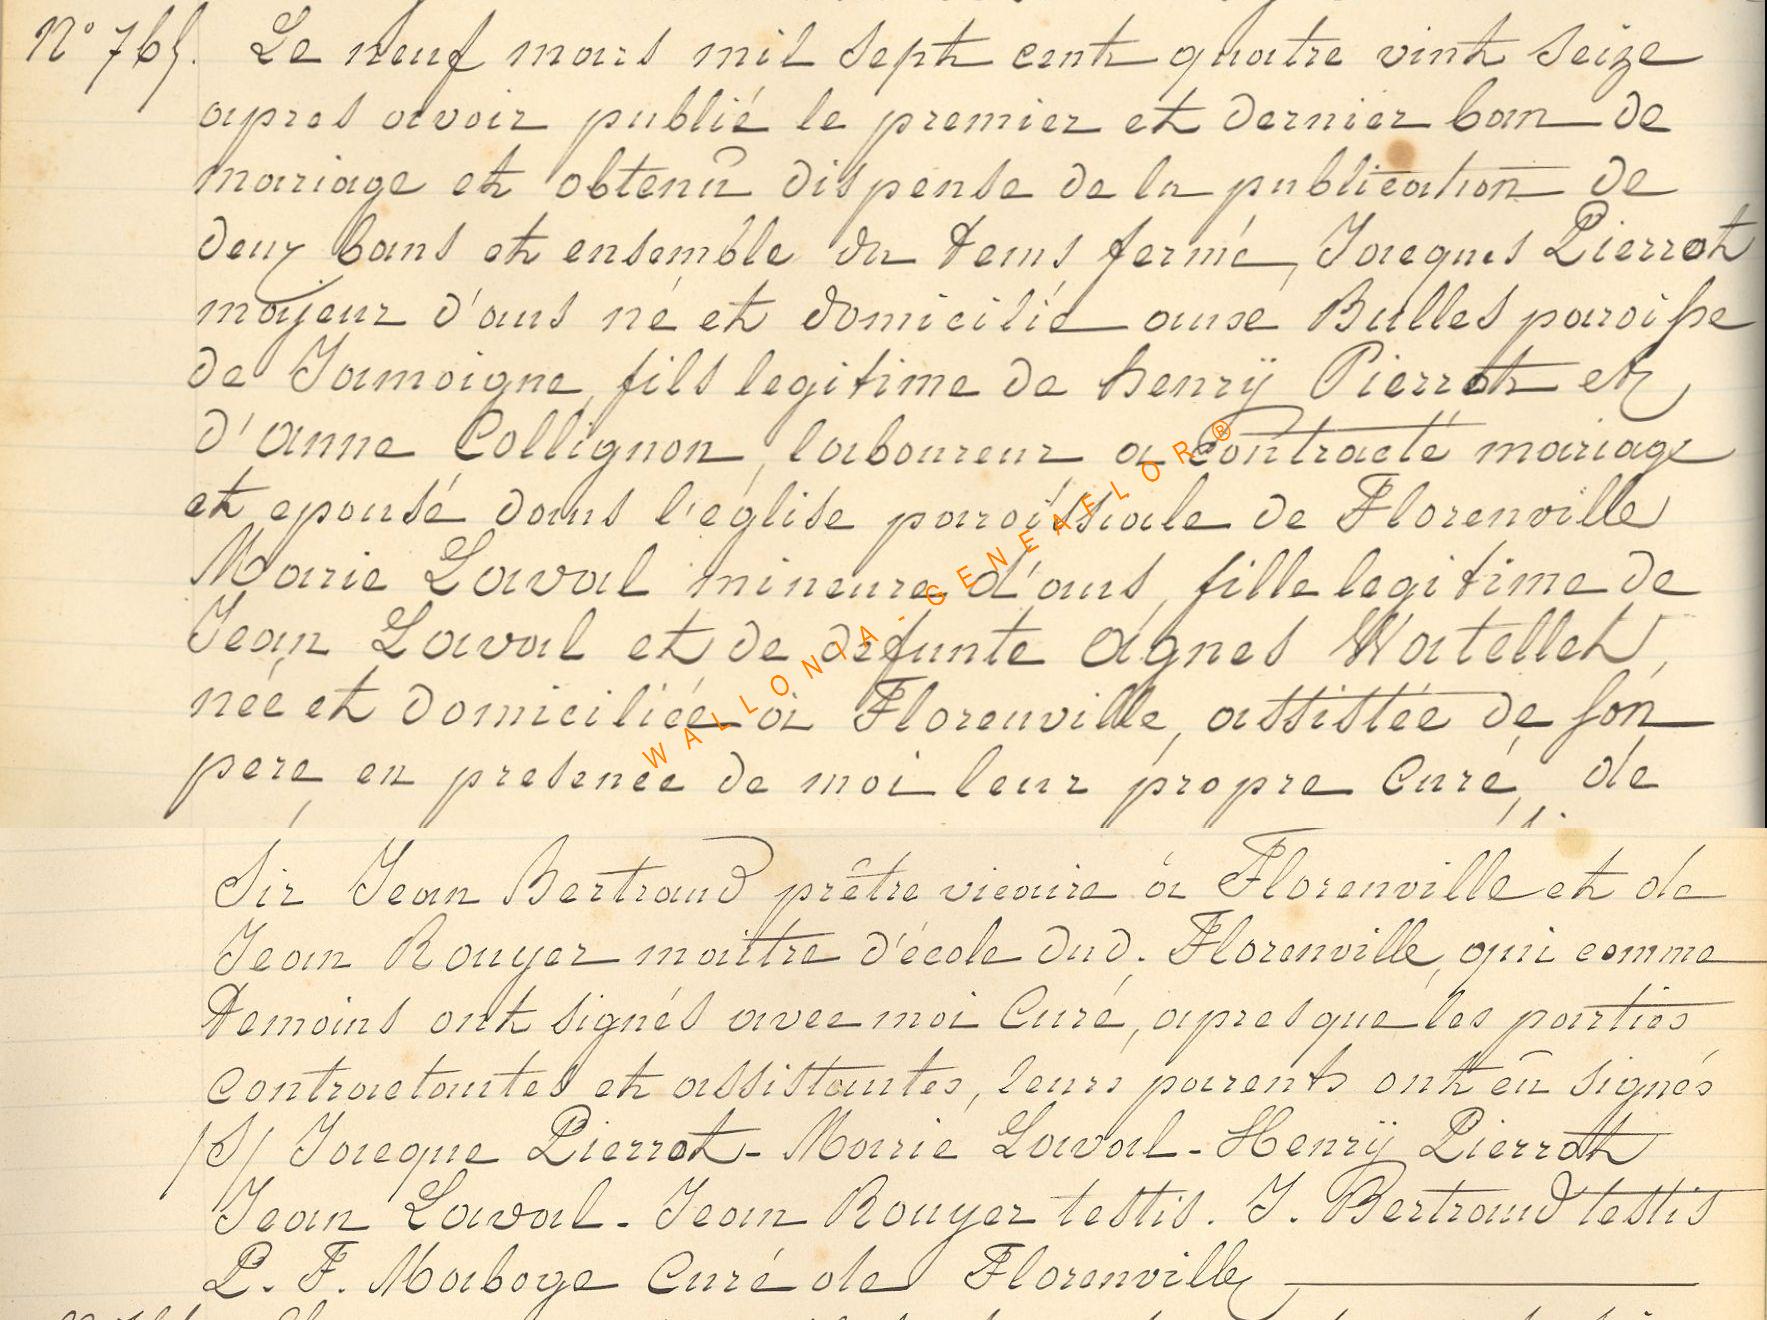 N° 765. Le neuf mars mil sept cent quatre vint seize
apres avoir publié le premier et dernier ban de
mariage et obtenû dispense de la publication de
deux bans et ensemble du tems fermé, Jacques Pierrot
majeur d'ans né et domicilié aune Bulles paroisse
de Jamoigne, fils legitime de henrÿ Pierrot et
d'anne Collignon, laboureur a contracté mariage
et epousé dans l'église paroissiale de Florenville
Marie Laval mineure d'ans, fille legitime de
Jean Laval et de defunte agnes Watellet,
née et domiciliée à Florenville, assistée de son
pere, en presence de moi leur propre Curé, de
Sir Jean Bertrand prêtre vicaire à Florenville et de
Jean Rouyer maittre d'école dud. Florenville, qui comme
temoins ont signés avec moi Curé, apres que les parties
contractantes et assistantes, leurs parents ont eû signés
/S/ Jacque Pierrot - Marie Laval - Henrÿ Pierrot
Jean Laval - Jean Rouyer testis. J. Bertrand testis
P. F. Maboge Curé de Florenville
WALLONIA-GENEAFLOR®